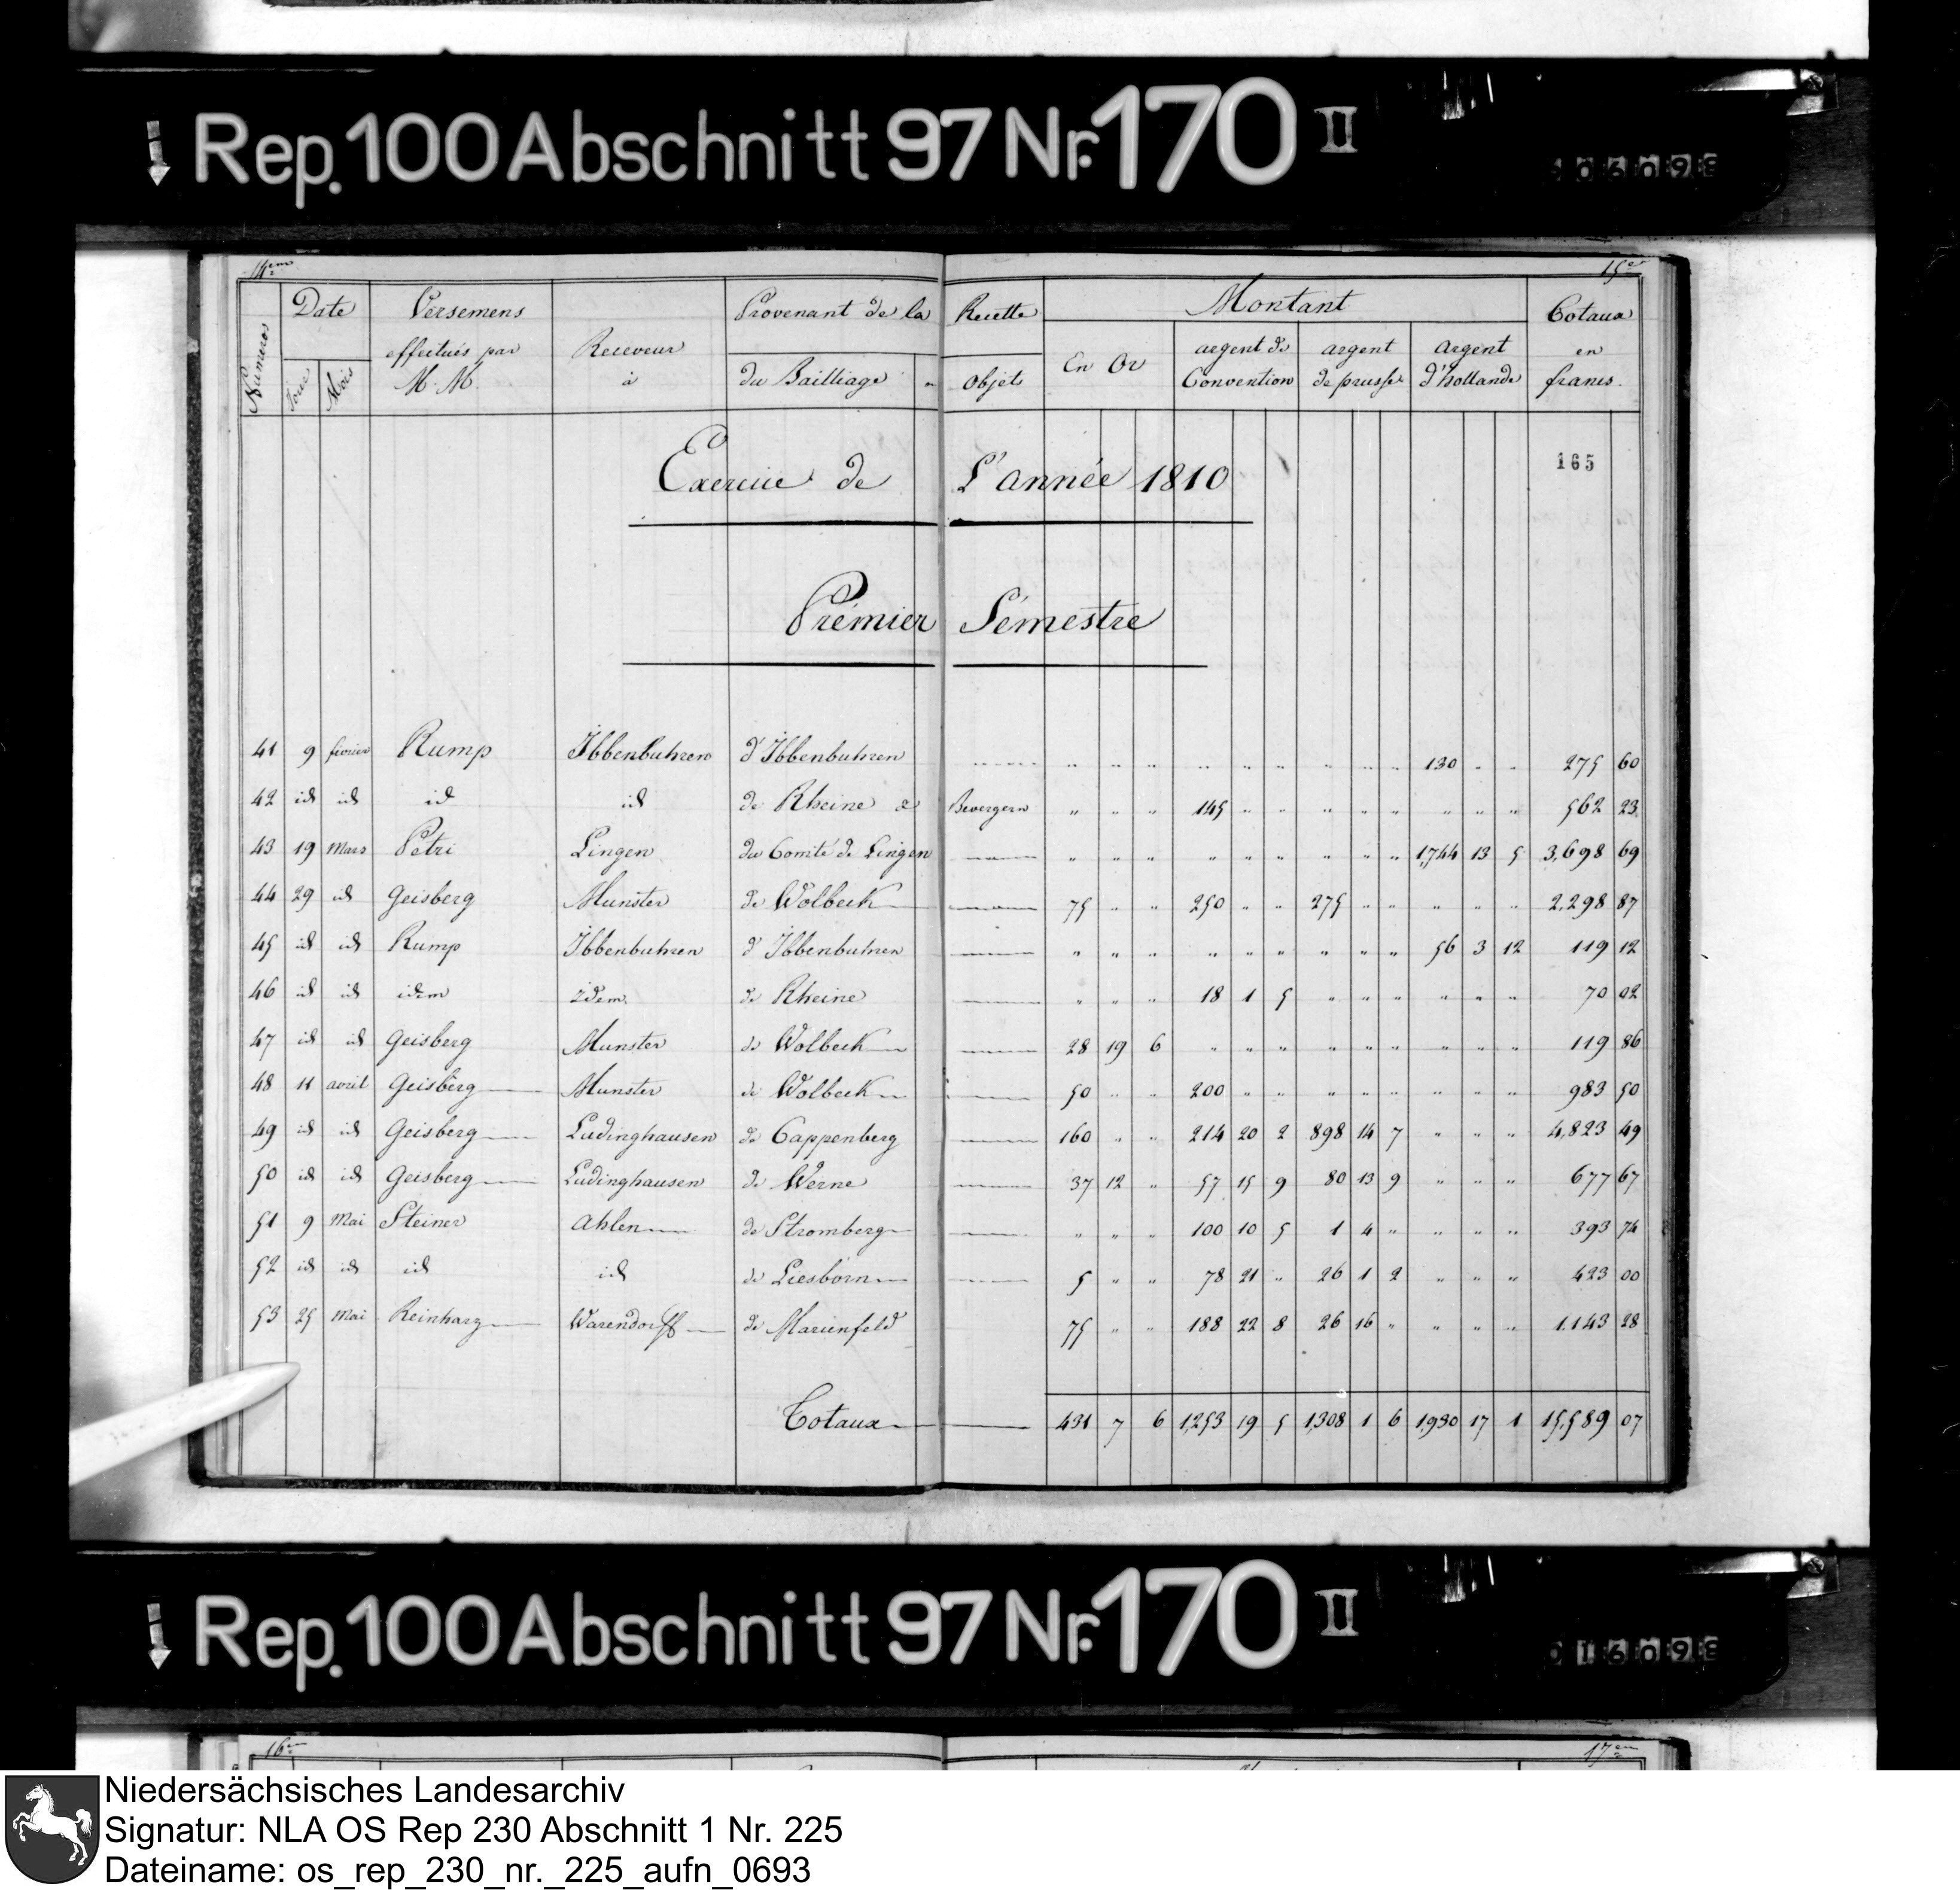 Rep. 100 Abschnitt 97 Nr. 170 II
14em 15em
Numeros Date Versemens Receveur Provenant de la Recette Montant Totaux
Jour Mois effectués par à du Bailliage Objets En Or argent de argent argent en
M. M. Convention de prusse d'hollande francs.
Exercice de L'année 1810
165
Prémier Sémestre
41 9 fevrier Rump Ibbenbuhren d'Ibbenbuhren " " " " " " " " " 130 " " 275 60
42 id id id id de Rheine & Bevergern " " " 145 " " " " " " " " 562 23
43 19 Mars Petri Lingen du Comté de Lingen " " " " " " " " " 1,744 13 5 3,698 69
44 29 id Geisberg Munster de Wolbeck 75 " " 250 " " 275 " " " " " 2,298 87
45 id id Rump Ibbenbuhren d'Ibbenbuhren " " " " " " " " " 56 3 12 119 12
46 id id idem idem de Rheine " " " 18 1 5 " " " " " " 70 02
47 id id Geisberg Munster de Wolbeck 28 19 6 " " " " " " " " " 119 86
48 11 avril Geisberg Munster de Wolbeck 50 " " 200 " " " " " " " " 983 50
49 id id Geisberg Ludinghausen de Cappenberg 160 " " 214 20 2 898 14 7 " " " 4,823 49
50 id id Geisberg Ludinghausen de Werne 37 12 " 57 15 9 80 13 9 " " " 677 67
51 9 Mai Steiner Ahlen de Stromberg " " " 100 10 5 1 4 " " " " 393 74
52 id id id id de Liesborn 5 " " 78 21 " 26 1 2 " " " 423 00
53 25 Mai Reinharz Warendorff de Marienfeld 75 " " 188 22 8 26 16 " " " " 1.143 28
Totaux 431 7 6 1,253 19 5 1,308 1 6 1,930 17 1 15,589 07
Rep. 100 Abschnitt 97 Nr. 170 II
16em 17em
Niedersächsisches Landesarchiv
Signatur: NLA OS Rep 230 Abschnitt 1 Nr. 225
Dateiname: os_rep_230_nr._225_aufn_0693